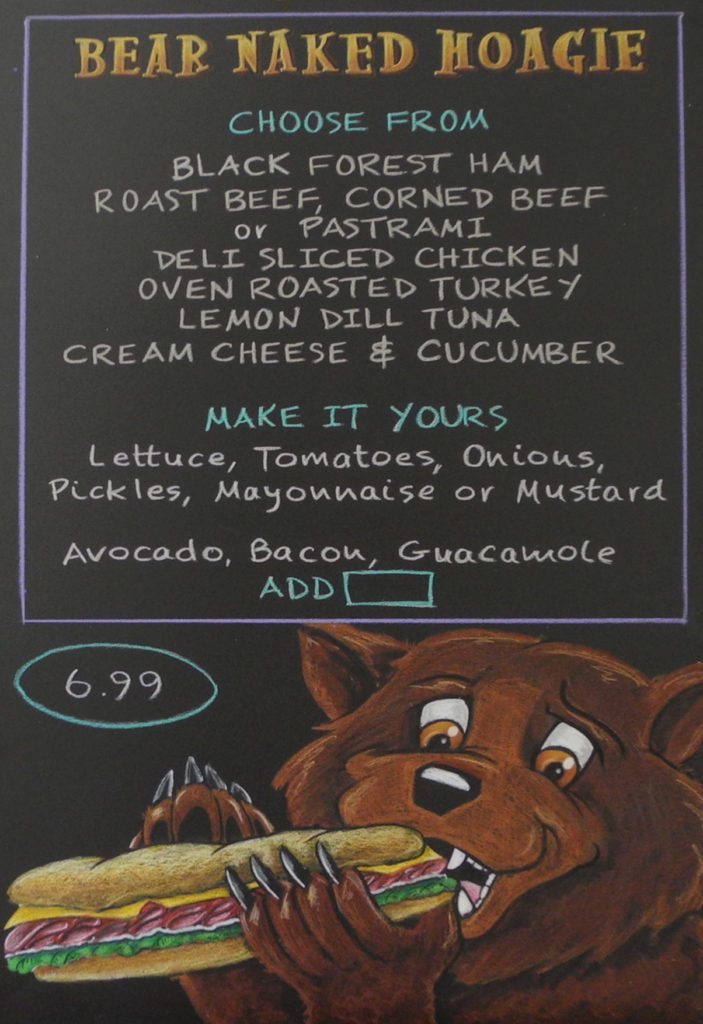 BEAR NAKED HOAGIE
CHOOSE FROM
BLACK FOREST HAM
ROAST BEEF, CORNED BEEF
or PASTRAMI
DELI SLICED CHICKEN
OVEN ROASTED TURKEY
LEMON DILL TUNA
CREAM CHEESE & CUCUMBER
MAKE IT YOURS
Lettuce, Tomatoes, Onions,
Pickles, Mayonnaise or Mustard
Avocado, Bacon, Guacamole
ADD
6.99